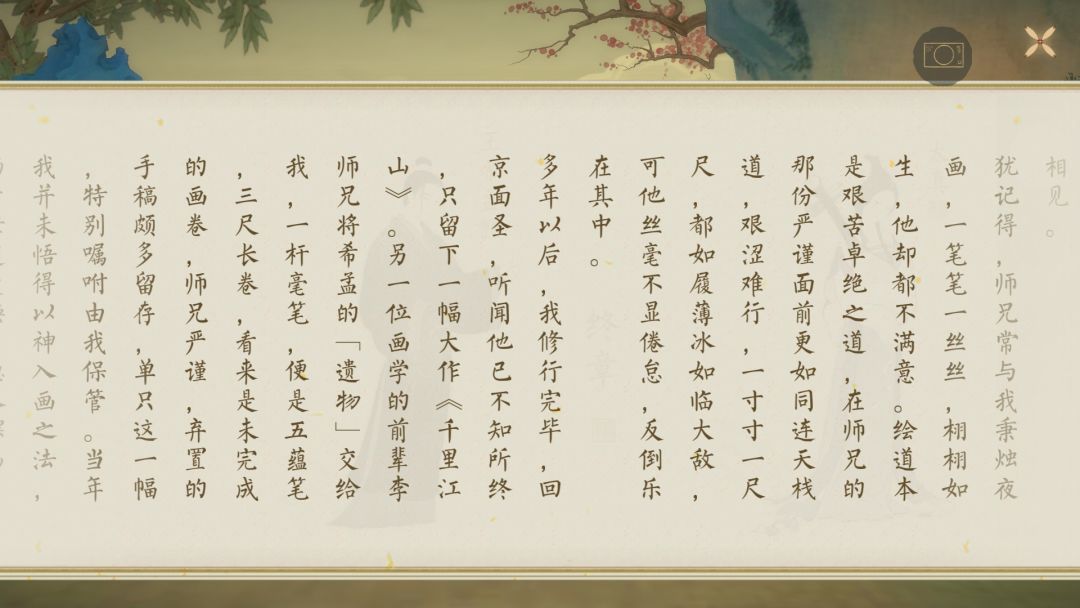 相见。
犹记得，师兄常与我秉烛夜
画，一笔笔一丝丝，栩栩如
生，他却都不满意。绘道本
是艰苦卓绝之道，在师兄的
那份严谨面前更如同连天栈
道，艰涩难行，一寸寸一尺
尺，都如履薄冰如临大敌，
可他丝毫不显倦怠，反倒乐
在其中。
多年以后，我修行完毕，回
京面圣，听闻他已不知所终
，只留下一幅大作《千里江
山》。另一位画学的前辈李
师兄将希孟的「遗物」交给
我，一杆毫笔，便是五蕴笔
，三尺长卷，看来是未完成
的画卷，师兄严谨，弃置的
手稿颇多留存，单只这一幅
，特别嘱咐由我保管。当年
我并未悟得以神入画之法，
终章